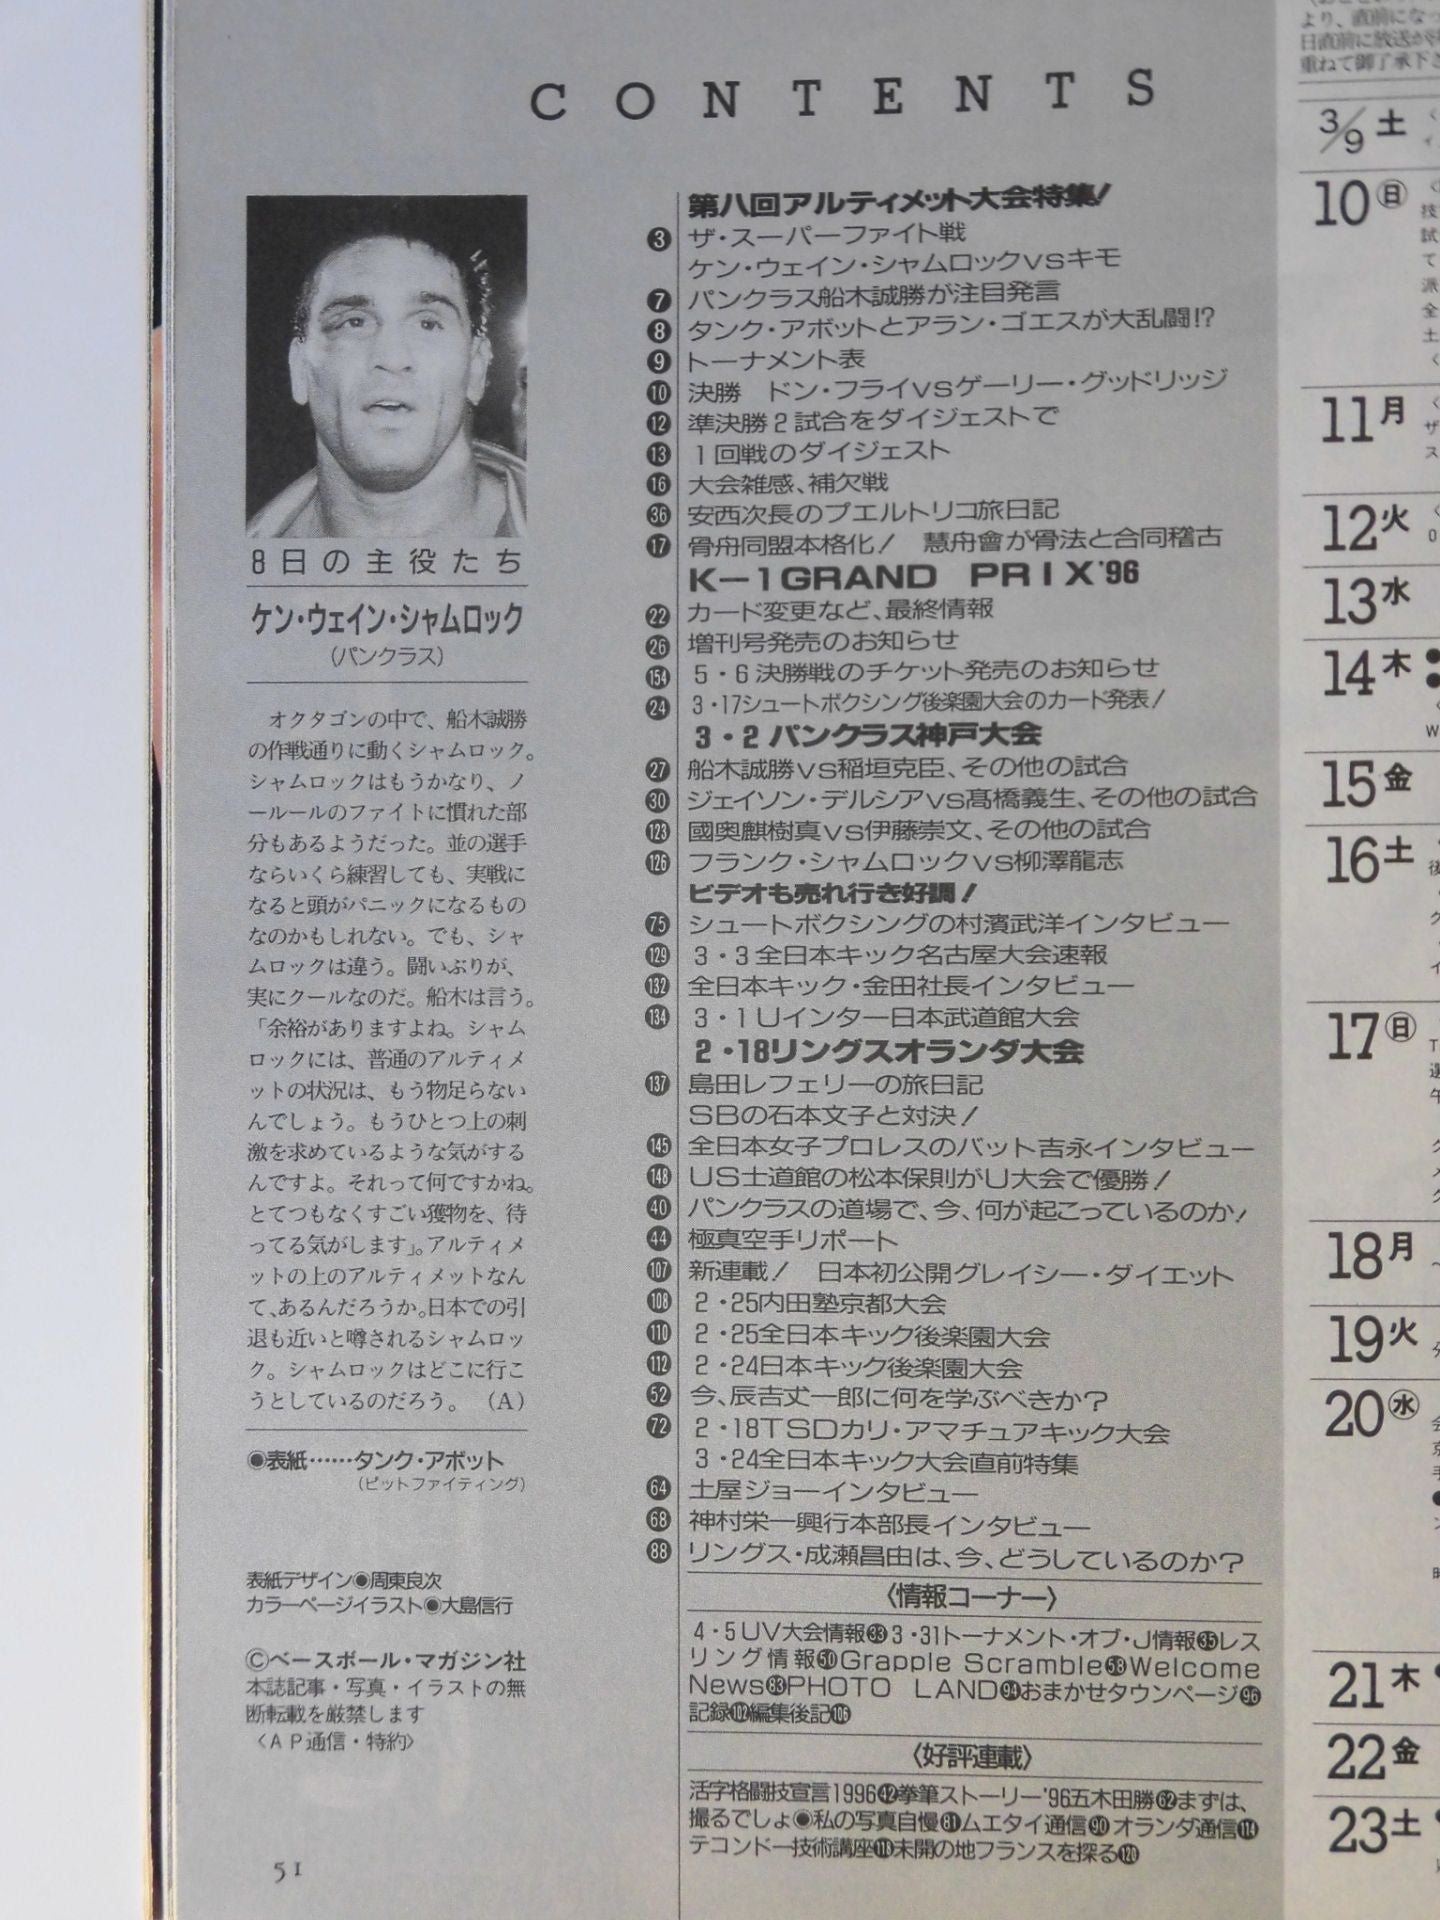 CONTENTS
8日の主役たち
ケン・ウェイン・シャムロック
（パンクラス）
オクタゴンの中で、船木誠勝
の作戦通りに動くシャムロック。
シャムロックはもうかなり、ノ
ールールのファイトに慣れた部
分もあるようだった。並の選手
ならいくら練習しても、実戦に
なると頭がパニックになるもの
なのかもしれない。でも、シャ
ムロックは違う。闘いぶりが、
実にクールなのだ。船木は言う。
「余裕がありますよね。シャム
ロックには、普通のアルティメ
ットの状況は、もう物足らない
んでしょう。もうひとつ上の刺
激を求めているような気がする
んですよ。それって何ですかね。
とてつもなくすごい獲物を、待
ってる気がします」。アルティメ
ットの上のアルティメットなん
て、あるんだろうか。日本での引
退も近いと噂されるシャムロッ
ク。シャムロックはどこに行こ
うとしているのだろう。 （A）
◉表紙……タンク・アボット
（ピットファイティング）
表紙デザイン◉周東良次
カラーページイラスト◉大島信行
©ベースボール・マガジン社
本誌記事・写真・イラストの無
断転載を厳禁します
〈AP通信・特約〉
51
第八回アルティメット大会特集！
3 ザ・スーパーファイト戦
ケン・ウェイン・シャムロックvsキモ
7 パンクラス船木誠勝が注目発言
8 タンク・アボットとアラン・ゴエスが大乱闘!?
9 トーナメント表
10 決勝　ドン・フライvsゲーリー・グッドリッジ
12 準決勝2試合をダイジェストで
13 1回戦のダイジェスト
16 大会雑感、補欠戦
36 安西次長のプエルトリコ旅日記
17 骨舟同盟本格化！　慧舟會が骨法と合同稽古
K-1 GRAND PRIX'96
22 カード変更など、最終情報
26 増刊号発売のお知らせ
154 5・6決勝戦のチケット発売のお知らせ
24 3・17シュートボクシング後楽園大会のカード発表！
3・2 パンクラス神戸大会
27 船木誠勝vs稲垣克臣、その他の試合
30 ジェイソン・デルシアvs髙橋義生、その他の試合
123 國奥麒樹真vs伊藤崇文、その他の試合
126 フランク・シャムロックvs柳澤龍志
ビデオも売れ行き好調！
75 シュートボクシングの村濱武洋インタビュー
129 3・3全日本キック名古屋大会速報
132 全日本キック・金田社長インタビュー
134 3・1Uインター日本武道館大会
2・18リングスオランダ大会
137 島田レフェリーの旅日記
SBの石本文子と対決！
145 全日本女子プロレスのバット吉永インタビュー
148 US士道館の松本保則がU大会で優勝！
40 パンクラスの道場で、今、何が起こっているのか！
44 極真空手リポート
107 新連載！　日本初公開グレイシー・ダイエット
108 2・25内田塾京都大会
110 2・25全日本キック後楽園大会
112 2・24日本キック後楽園大会
52 今、辰吉丈一郎に何を学ぶべきか？
72 2・18TSDカリ・アマチュアキック大会
3・24全日本キック大会直前特集
64 土屋ジョーインタビュー
68 神村栄一興行本部長インタビュー
88 リングス・成瀬昌由は、今、どうしているのか？
〈情報コーナー〉
4・5UV大会情報33 3・31トーナメント・オブ・J情報35レス
リング情報50Grapple Scramble58Welcome
News83PHOTO LAND94おまかせタウンページ96
記録102編集後記106
〈好評連載〉
活字格闘技宣言1996 42拳筆ストーリー'96五木田勝62まずは、
撮るでしょ◉私の写真自慢81ムエタイ通信90オランダ通信114
テコンドー技術講座118未開の地フランスを探る120
より、直前になっ
日直前に放送が
重ねて御了承下さ
3/9土
10日
11月
12火
13水
14木
15金
16土
17日
18月
19火
20水
21木
22金
23土